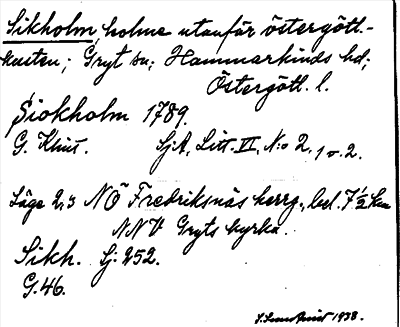 Sikholm holme utanför östergötl.-
kusten; Gryt sn; Hammarkinds hd;
Östergötl. l.
Siokholm 1789.
G. Klint. Sj.A, Litt. VI, N:o 2, 1 o. 2.
Läge 2,3 NÖ Fredriksnäs herrg., bel. 7 1/2 km
NNV Gryts kyrka.
Sikh. Sj: 252.
G.46.
1938.